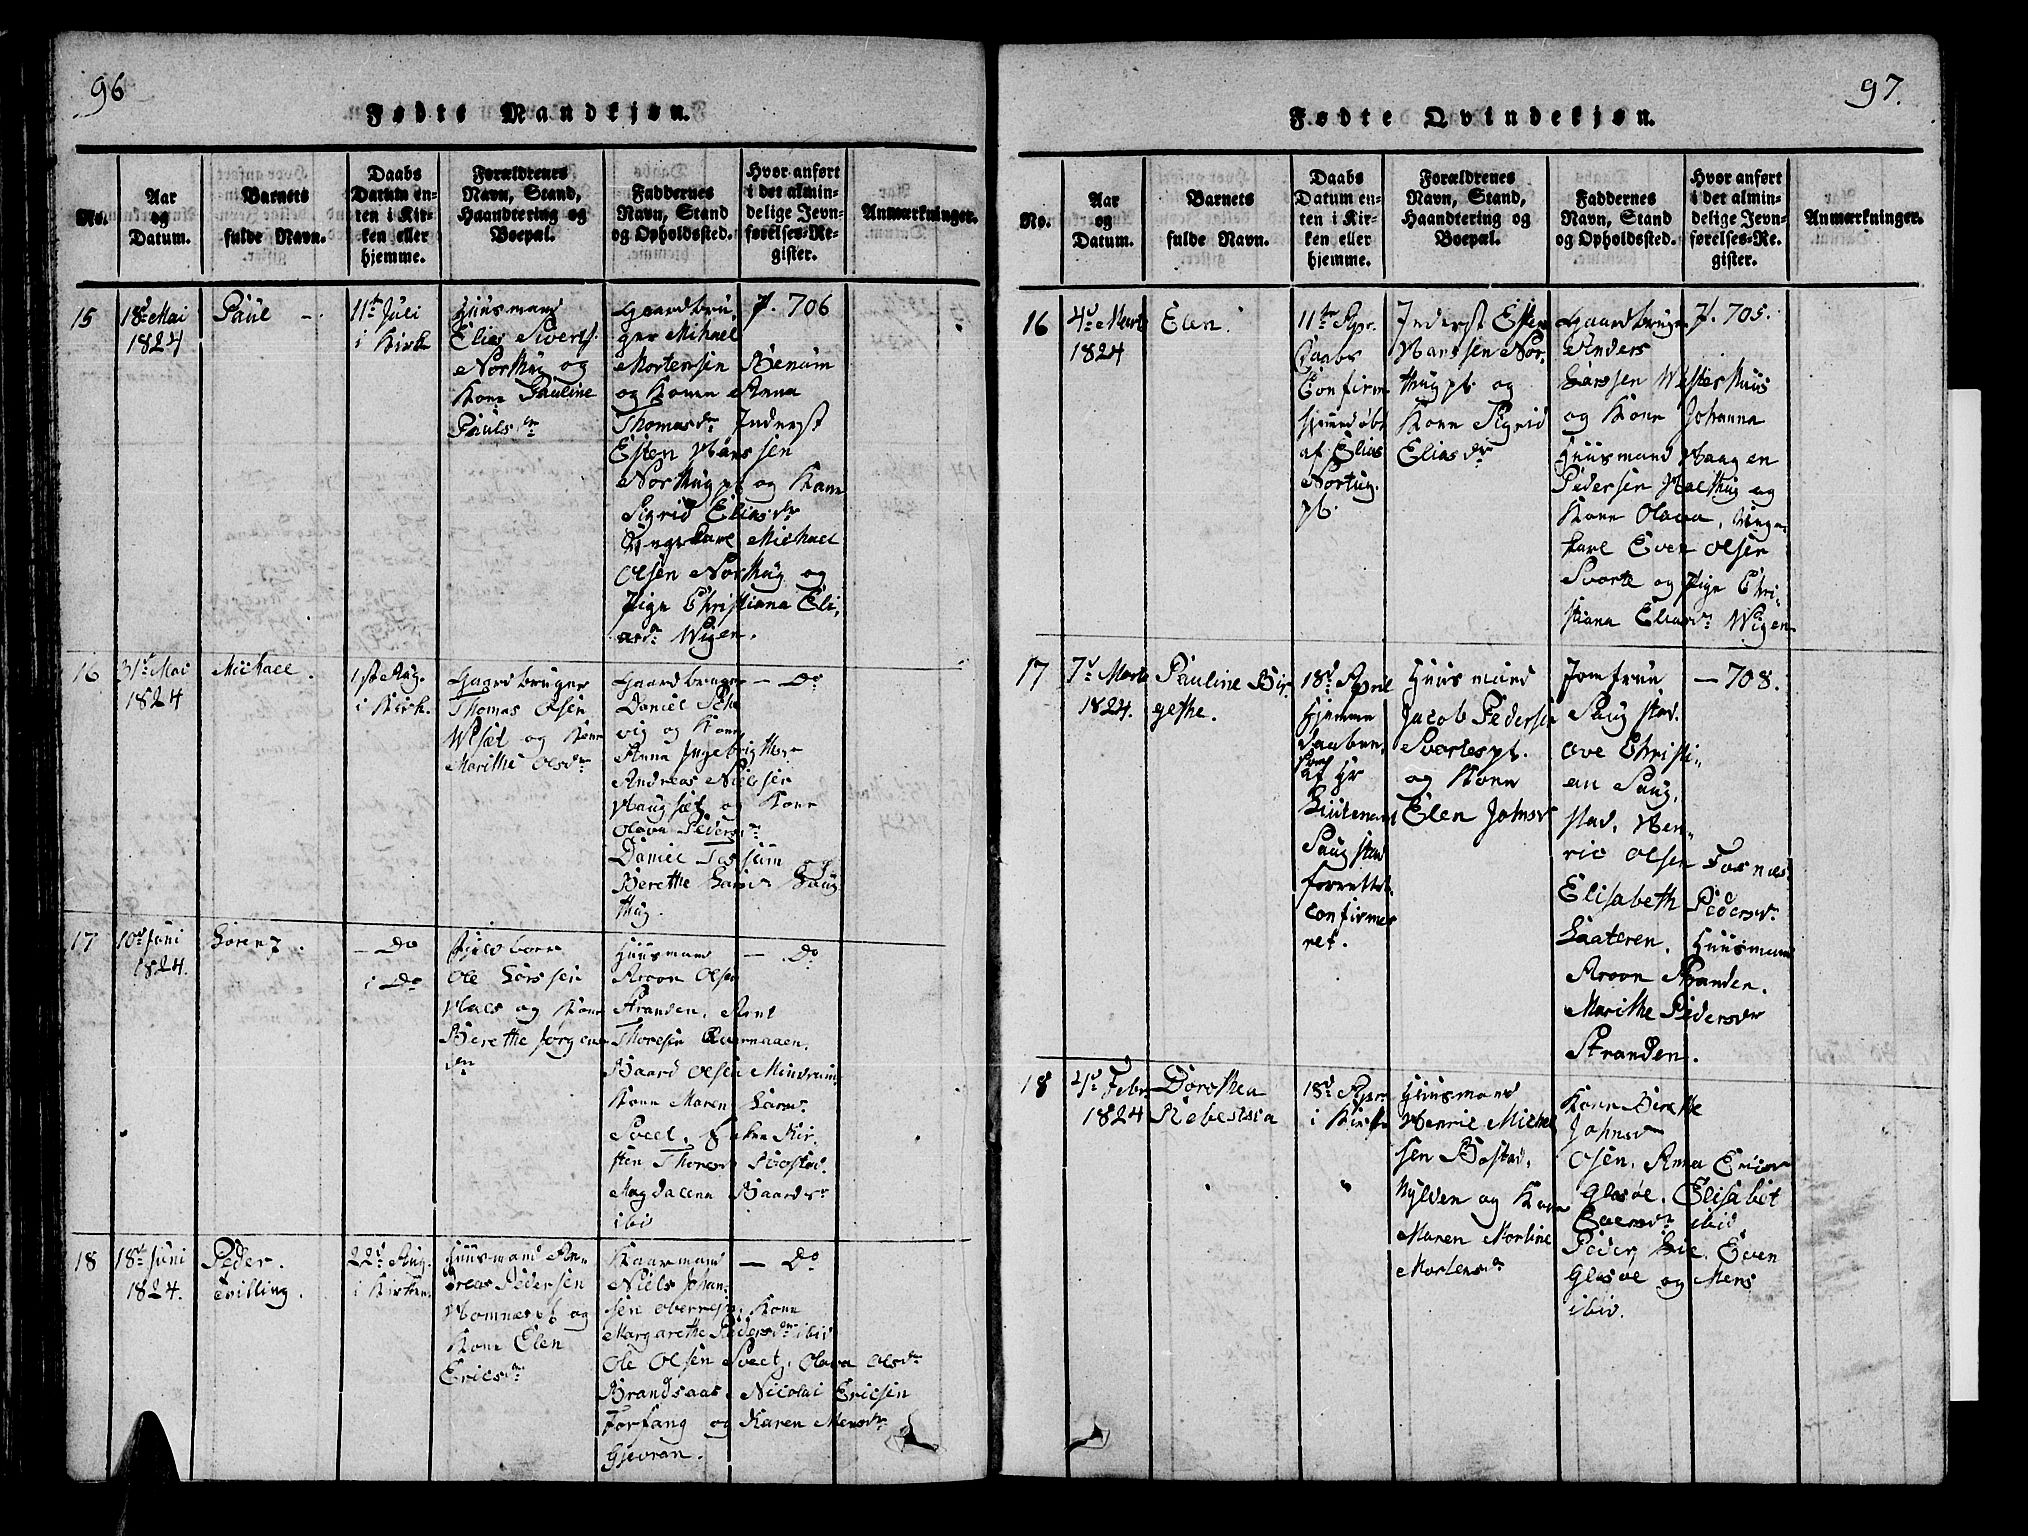 96
Fødte Mandkjøn.
No.
Aar
og
Datum.
Barnets
fulde Navn.
Daabs
Datum en-
ten i Kir-
ken eller
hjemme.
Forældrenes
Navn, Stand,
Haandtering og
Boepæl.
Faddernes
Navn, Stand
og Opholdssted.
Hvor anført
i det almin-
delige Jevn-
førelses-Re-
gister.
Anmærkninger.
15
18d Mai
1824
Paul
11te Juli
i Kirk
Huusmand
Elias Siverts.
Northug og
Kone Pauline
Paulsdr
Gaardbru-
ger Mikael
Mortensen Benum
og Kone Anna
Thomasdr Inderst
Esten Hanssen
Northug pl. og Kone
Sigrid Eliasdr
Ungekarl Michael
Olsen Northug og
Pige Christiana Eli-
asdr Wigen.
p. 706
16
31te Mai
1824
Michael.
1ste Aug.
i Kirk.
Gaardbruger
Thomas Olsen
og Kone
Marithe Olsdr
Gaardbruger
Daniel
vig og Kone
Anna Ingebrigth
Andreas Nielsen
Haugsæt og Kone
Olava Pedersdr
Daniel Tossum og
Berethe Larsdr Haug
thug.
— Do
17
10d Juni
1824.
Lorentz.
— Do
i Do
Ole Larssen
Hals og Kone
Berethe Jørgens
dr
Huusmand
Aroon Olsen
Stranden, Arnt
Thoresen Qvernaaen.
Baard Olsen Mindrum
Kone Maren Larsdr
Sveet, Enken Kir-
sten Thoresdr
Magdalena Baardsdr
ibid
— Do
18
18de Juni
1824.
Peder.
Tvilling.
22d Aug.
i Kirken.
Huusmand An-
dreas Pedersen
Homnæs pl. og
Kone Elen
Ericsdr
Kaarmand
Niels Johan-
sen Kone
Margarethe Pedersdr ibid
Ole Olsen Sveet, Olava Olsdr
Brandsaas. Nicolai Ericsen
Forfang og Karen Monsdr
Gjevran.
— Do
97.
Fødte Qvindekjøn.
No.
Aar
og
Datum.
Barnets
fulde Navn.
Daabs
Datum en-
ten i Kir-
ken eller
hjemme.
Forældrenes
Navn, Stand,
Haandtering og
Boepæl.
Faddernes
Navn, Stand
og Opholdssted.
Hvor anført
i det almin-
delige Jevn-
førelses-Re-
gister.
Anmærkninger.
16
4d Marts
1824
Elen.
11te Apr.
Daabs
Confirm
hjemmedøbt
af Elias
Nortug.
pl.
Inderst Esten
Hanssen Nor-
thug pl. og
Kone Sigrid
Eliasdr
Gaardbruger
Anders
Larssen Westerhuus
og Kone Johanna
Huusmand Haagen
Pedersen og
Kone Olava, Unge-
karl Even Olsen
Svarte og Pige Chri-
stiana Eliasdr Wigen
p. 705.
17
7d Marts
1824.
Pauline Bir-
gethe.
18d April
Hjemme
daaben
af Hr
Lieutenant
Saugstad
forrettet.
confirme-
ret.
Huusmand
Jacob Pedersen
Svartes pl.
og Kone
Elen Johnsdr
Jomfrue
Saugstad.
ove Christi-
an Saug-
stad, Hen-
ric Olsen Fornes.
Elisabeth Pedersdr
Laateren. Huusmand
Aroon Stranden.
Marithe Pedersdr
Stranden.
— 708.
18
4d Febr
1824
Dorothea
Rebecka
18d Apr.
i Kirke
Huusmand
Henric Michel
sen Bostad,
Hylden og Kone
Maren Martine
Mortensdr
Kone Birethe
Johnsdr
Osen. Anna Ericsdr
Glosøe. Elisabet
Evensdr ibid.
Peder Lie. Even
Glosøe og Mons
ibid.